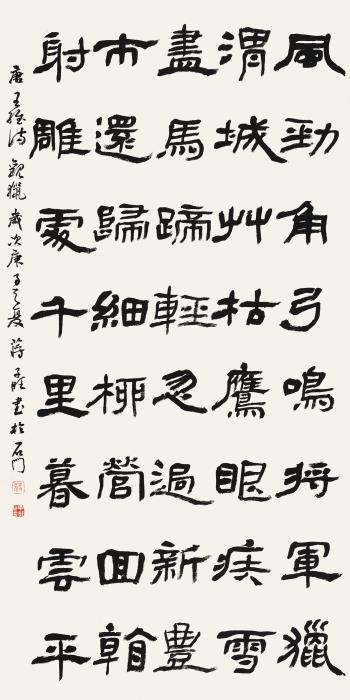 風勁角弓鳴將軍獵
渭城艸枯鷹眼疾雪
盡馬蹄輕忽過新豊
市還歸細柳營回看
射雕處千里暮雲平
唐王維詩觀獵歲次庚子之夏蔣書於石門